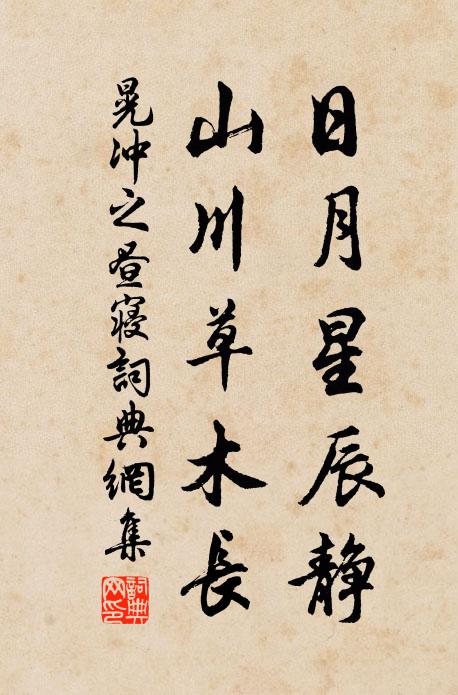 日月星辰静
山川草木長
晁冲之昼寝詞典網集
詞典網印